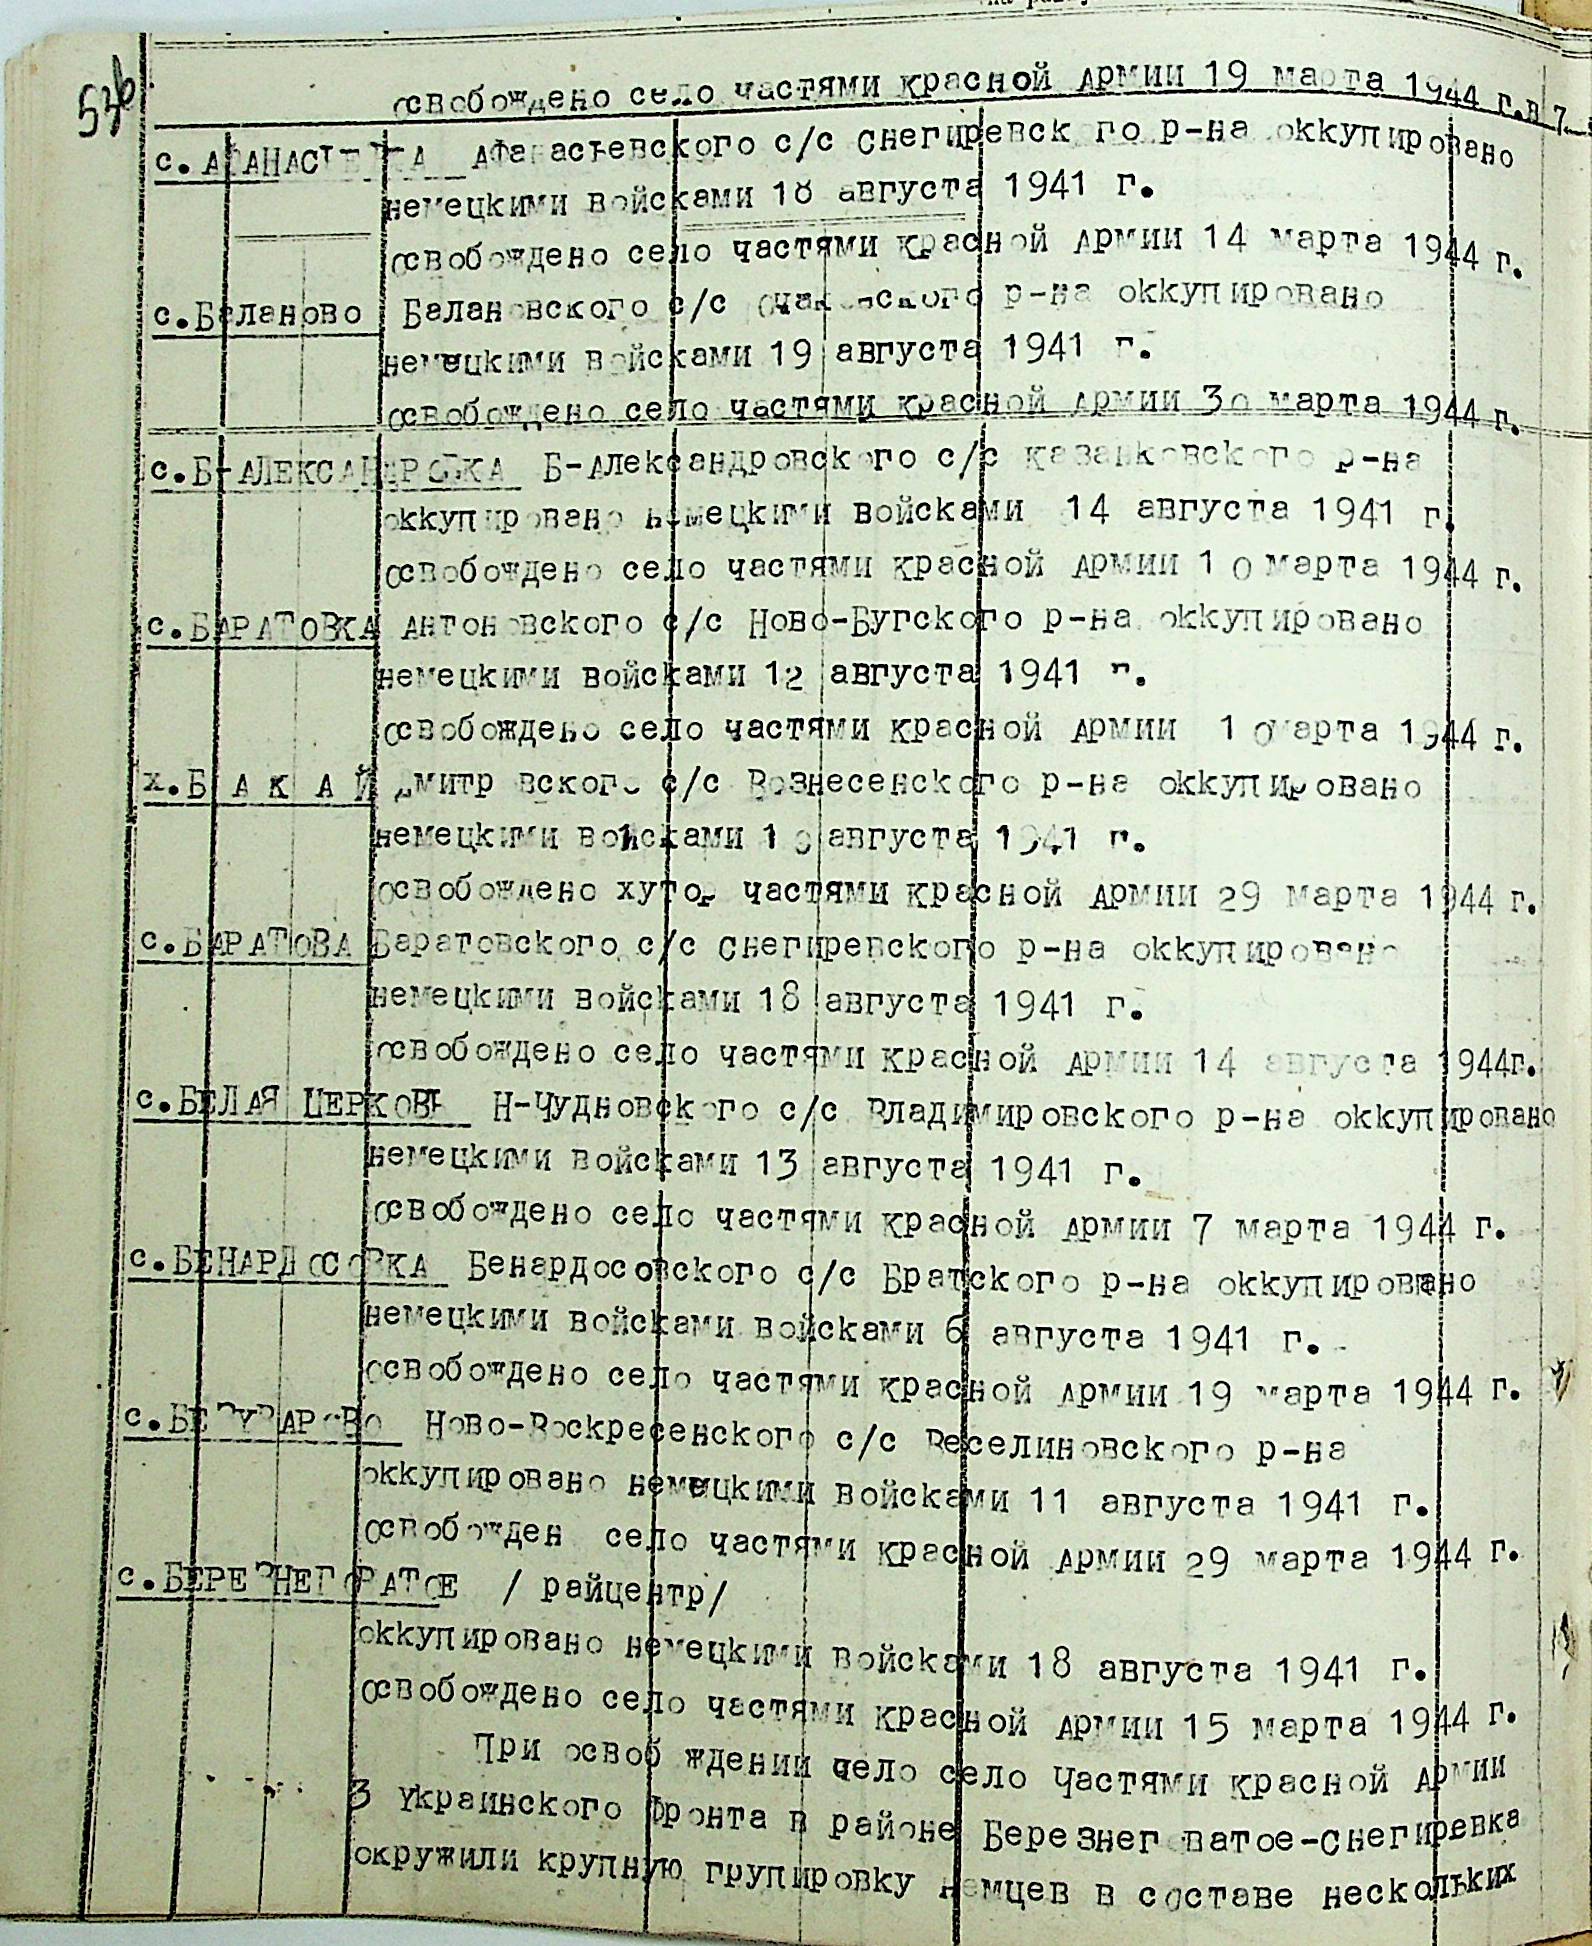 53б
освобождено село частями красной Армии 19 марта 1944 г.в 7
с. АФАНАСЬЕВКА Афанасьевского с/с Снегиревск го р-на оккупировано
немецкими войсками 18 августа 1941 г.
освобождено село частями красной Армии 14 марта 1944 г.
с.Баланово Балановского с/с Очаковского р-на оккупировано
немецкими войсками 19 августа 1941 г.
освобождено село частями красной Армии 30 марта 1944 г.
с.Б-АЛЕКСАНДРОВКА Б-Александровского с/с казанковского р-на
оккупировано немецкими войсками 14 августа 1941 г.
освобождено село частями красной Армии 10 марта 1944 г.
с.БАРАТОВКА Антоновского с/с Ново-Бугского р-на оккупировано
немецкими войсками 12 августа 1941 г.
освобождено село частями красной Армии 10 марта 1944 г.
х.Б А К А Й Дмитр вского с/с Вознесенского р-на оккупировано
немецкими войсками августа 1941 г.
освобождено хутор частями красной Армии 29 марта 1944 г.
с.БАРАТОВА Баратовского с/с Снегиревского р-на оккупировано
немецкими войсками 18 августа 1941 г.
освобождено село частями красной Армии 14 августа 1944г.
с.БЕЛАЯ ЦЕРКОВЬ Н-Чудновского с/с Владимировского р-на оккупировано
немецкими войсками 13 августа 1941 г.
освобождено село частями красной Армии 7 марта 1944 г.
с.БЕНАРДОСОВКА Бенардосовского с/с Братского р-на оккупировано
немецкими войсками войсками 6 августа 1941 г.
освобождено село частями красной Армии 19 марта 1944 г.
Ново-Воскресенского с/с Веселиновского р-на
оккупировано немецкими войсками 11 августа 1941 г.
освобожден село частями красной Армии 29 марта 1944 г.
с.БЕРЕЗНЕГОВАТОЕ / райцентр/
оккупировано немецкими войсками 18 августа 1941 г.
освобождено село частями красной Армии 15 марта 1944 г.
При освоб ждении чело село Частями красной Армии
3 Украинского Фронта в районе Березнег ватое-Снегиревка
окружили крупную групировку немцев в составе нескольких